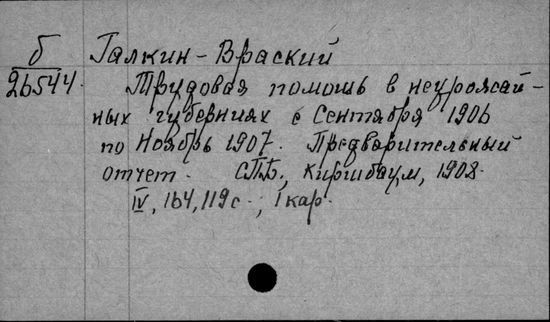 б Галкин-Враский
26544. Трудовая помощь в неурожай-
ных губерниях с Сентября 1906
по Ноябрь 1907. Предварительный
отчет. СПБ., Киршбаум, 1908.
IV, 164, 119 с., 1 кар.